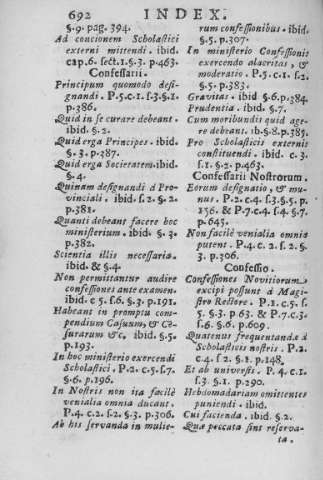 692 INDEX.
§.9. pag. 394.
Ad concionem Scholastici
externi mittendi. ibid.
c1p.6. sect.1.§.3. p.463.
Confessarii.
Principum quomodo desi-
gnandi. P.5.c.1.s.3.§.1.
p.386.
Quid in se curare debeant.
ibid. §.2.
Quid erga Principes. ibid.
§.3. p.387.
Quid erga Societatem. ibid.
§.4.
Quinam designandi à Pro-
vinciali. ibid. s.2. §.2.
p.381.
Quanti debeant facere hoc
ministerium. ibid. §.3.
p.382.
Scientia illis necessaria.
ibid. & §.4.
Non permittantur audire
confessiones ante examen.
ibid. c 5. s.6. §.3. p.191.
Habeant in promptu com-
pendium Casuum, & Cē-
surarum &c, ibid. §.5.
p.193.
In hoc ministerio exercendi
Scholastici. P.2.c.5.s.7.
§.6. p.196.
In Nostris non ita facilè
venialia omnia ducant.
P.4.c.2.s.2. §.3. p.306.
Ab his servanda in mulie-
rum confessionibus. ibid.
§.5. p.307.
In ministerio Confessionis
exercendo alacritas, &
moderatio. P.5.c.1. s.2.
§.5. p.383.
Gravitas. ibid §.6.p.384.
Prudentia. ibid. §.7.
Cum moribundis quid age-
re debeant. ib.§.8.p.385.
Pro Scholasticis externis
constituendi. ibid. c.3.
s.1. §.2. p.463.
Confessarii Nostrorum.
Eorum designatio, & mu-
nus. P.2.c.4. s.3.§.5. p.
156. & P.7.c.4. s.4.§.7.
p.645.
Non facilè venialia omnia
putent. P.4.c.2.s.2.§.
3. p.306.
Confessio.
Confessiones Novitiorum
excipi possunt à Magi-
stro Rectore. P.1.c.5.s.
5.§.3. p 63. & P.7.c.3.
s.6. §.6. p.609.
Quatenus frequentandæ à
Scholasticis nostris. P.2.
c.4. s 2. §.1. p.148.
Et ab universis. P.4.c.1.
s.3. §.1. p.290.
Hebdomadariam omittentes
puniendi. ibid.
Cui facienda. ibid. §.2.
Quæ peccata sint reserva-
ta.